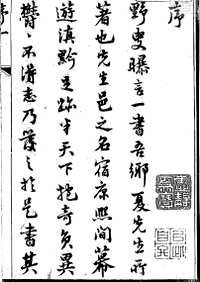 序
野叟曝言一書吾鄉夏先生所
著也先生邑之名宿康熙間幕
遊滇黔足跡半天下抱奇負異
鬱鬱不得志乃發之於是書其